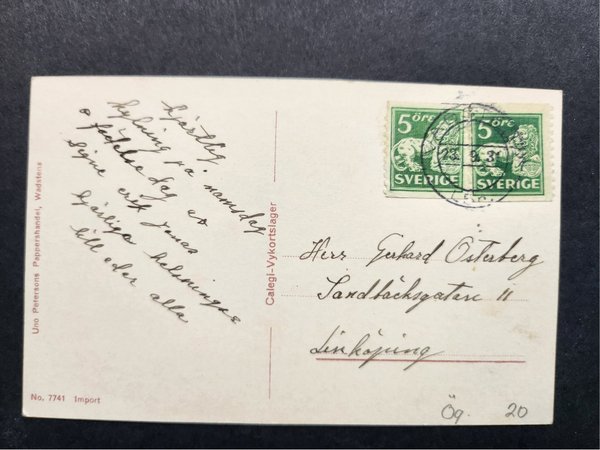 hjärtlig
hylning på namsdag
o födelsedag av
Signe erik Jonas
hjärliga helsningar
till eder alla
Uno Petersons Pappershandel, Wadstena
No. 7741 Import
Calegi-Vykortslager
5 ÖRE
SVERIGE
5 ÖRE
SVERIGE
Herr Gerhard Österberg
Sandbäcksgatan 11
Linköping
Ög. 20